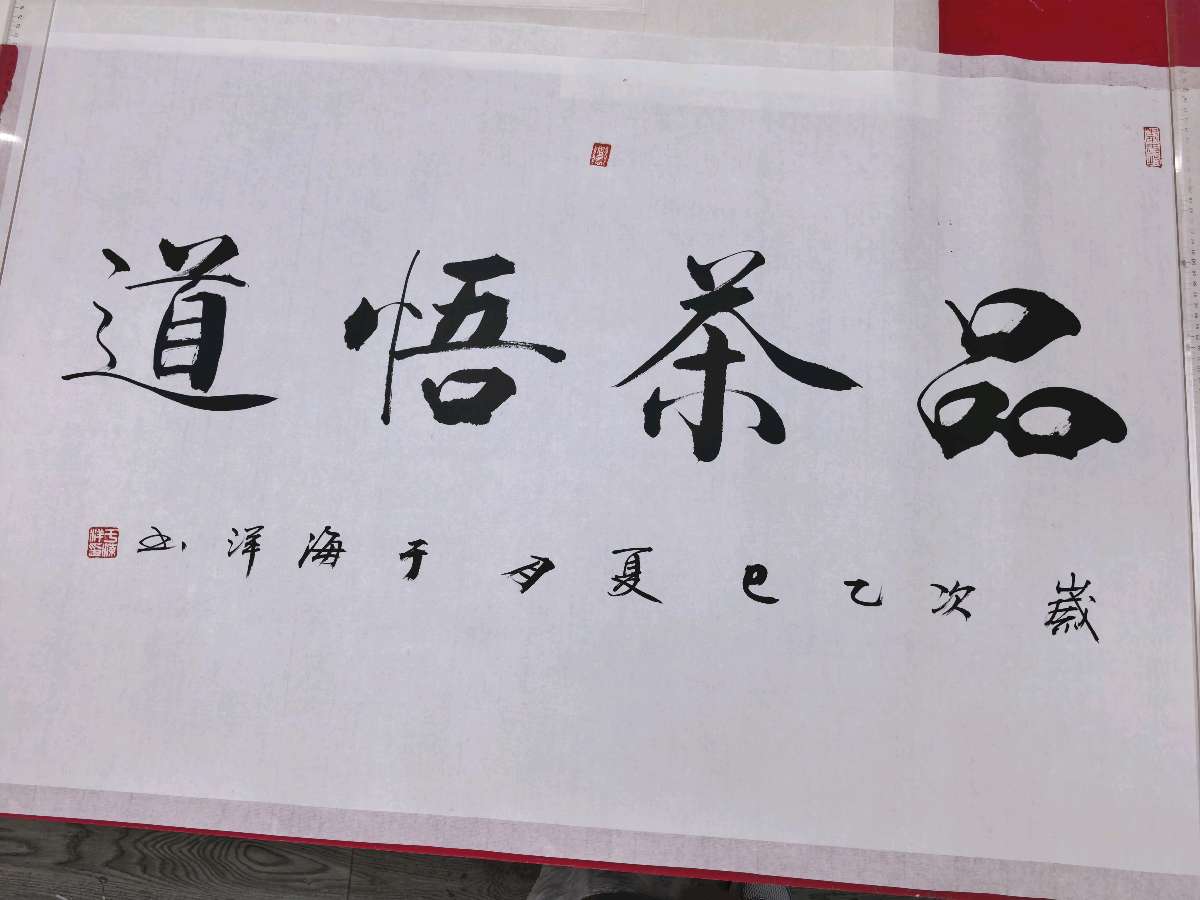 品茶悟道
歲次乙巳夏月于海洋书